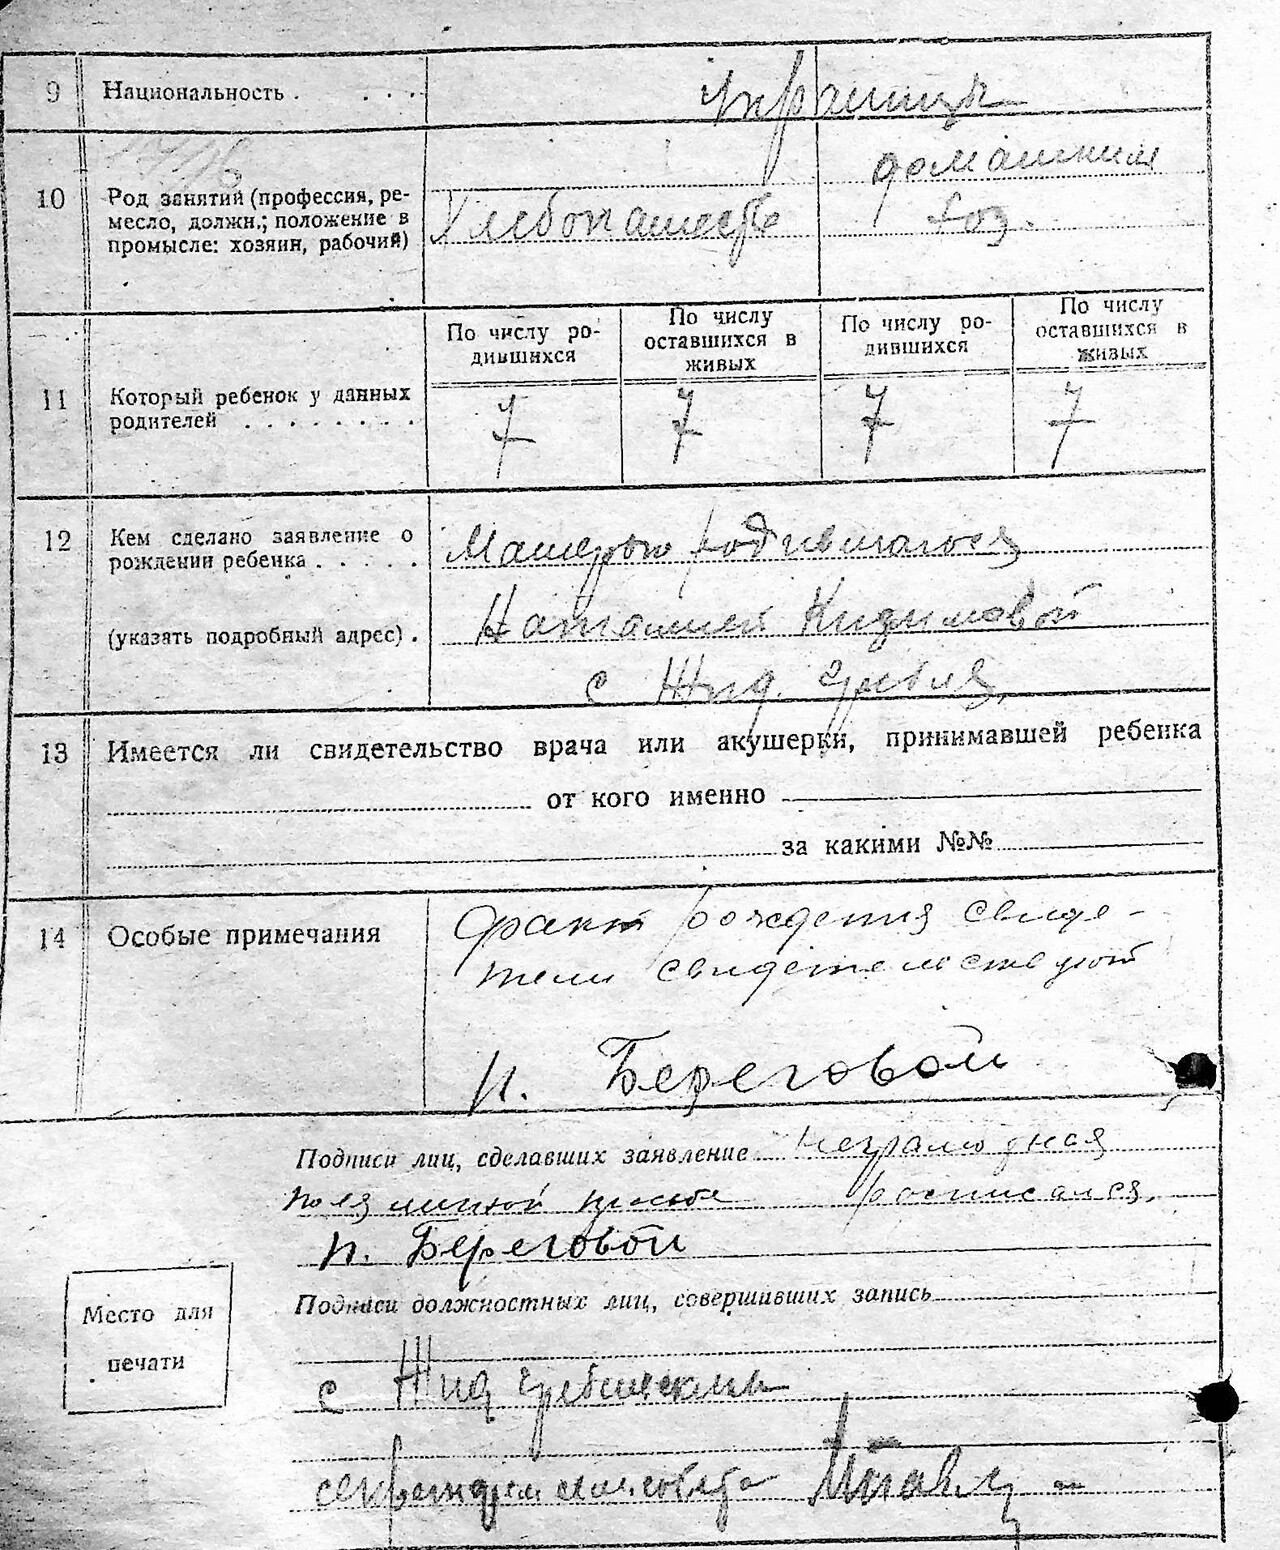 9 Национальность . . . .
украинцы
10 Род занятий (профессия, ре-
месло, должн.; положение в
промысле: хозяин, рабочий)
Хлебопашество
домашним
хоз.
11 Который ребенок у данных
родителей . . . . . . . .
По числу ро-
дившихся
По числу
оставшихся в
живых
По числу ро-
дившихся
По числу
оставшихся в
живых
7 7 7 7
12 Кем сделано заявление о
рождении ребенка . . . . .
(указать подробный адрес) .
Матерью родившагося
Наталией
с Жид. Гребля
13 Имеется ли свидетельство врача или акушерки, принимавшей ребенка
от кого именно
за какими №№
14 Особые примечания
факт рождения свиде-
тели свидетельствуют
И. Береговой
Подписи лиц, сделавших заявление неграмотная
по ея личной просьбе росписался.
И. Береговой
Место для
печати
Подписи должностных лиц, совершивших запись
с Жид Гребельским
секретарем сельсовета